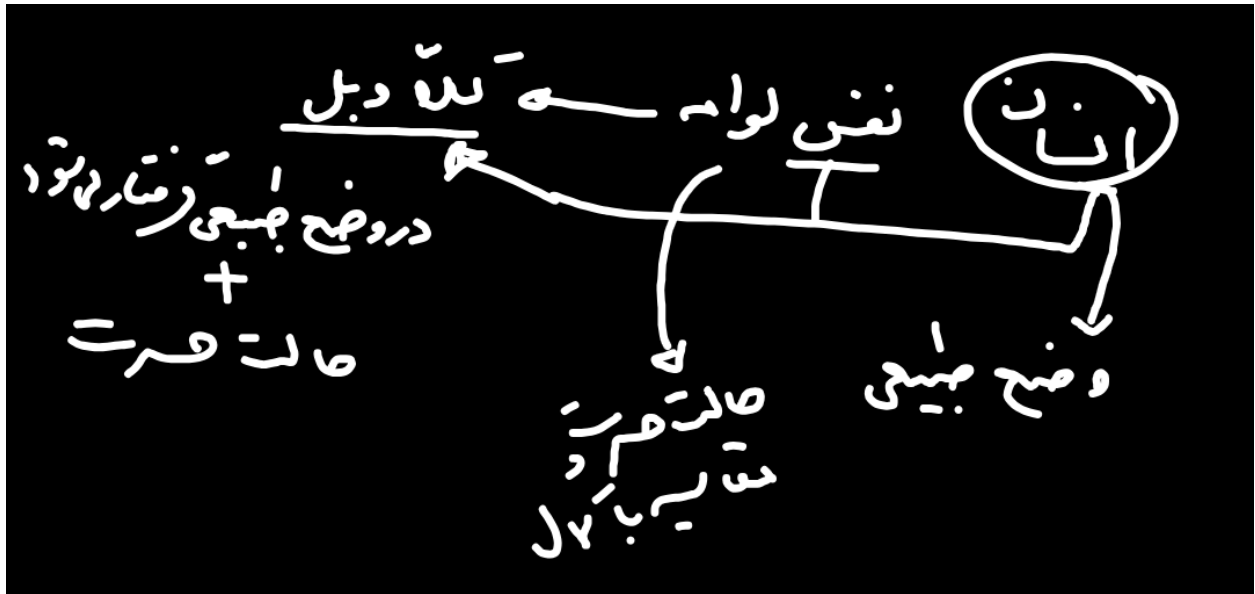 انسان
نفس لوامه
گناه دبل
در وضع طبیعی گرفتار می‌شود
+
حالت حسرت
وضع طبیعی
حالت حسرت
و
مقایسه با کمال